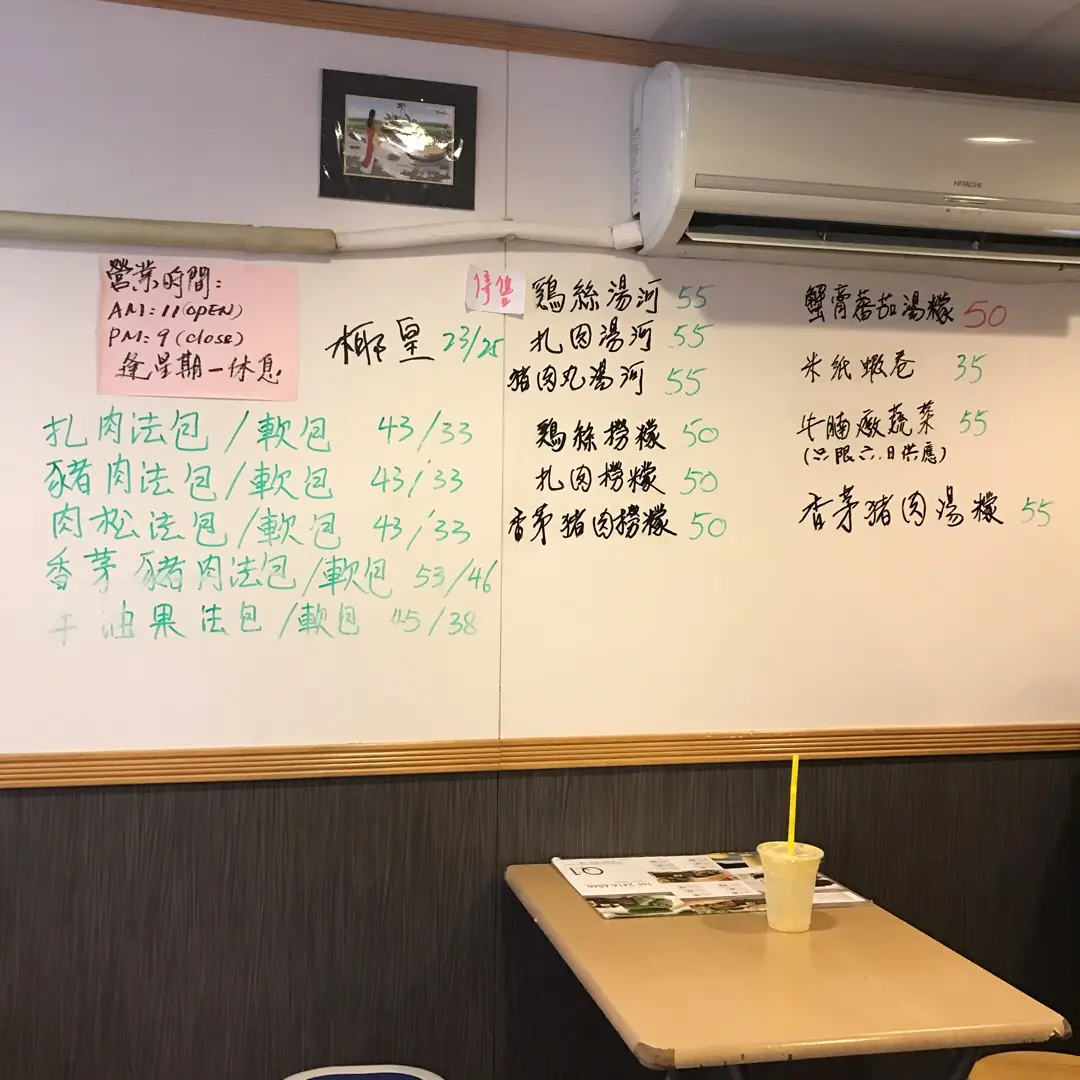 營業時間:
AM:11(OPEN)
PM:9(close)
逢星期一休息
椰皇 23/25
扎肉法包/軟包 43/33
豬肉法包/軟包 43/33
肉松法包/軟包 43/33
香茅豬肉法包/軟包 53/46
牛油果法包/軟包 45/38
停售
鷄絲湯河 55
扎肉湯河 55
猪肉丸湯河 55
鷄絲撈檬 50
扎肉撈檬 50
香茅猪肉撈檬 50
蟹膏蕃茄湯檬 50
米紙蝦卷 35
牛腩燉蔬菜 55
(只限六.日供應)
香茅猪肉湯檬 55
HITACHI
Q1